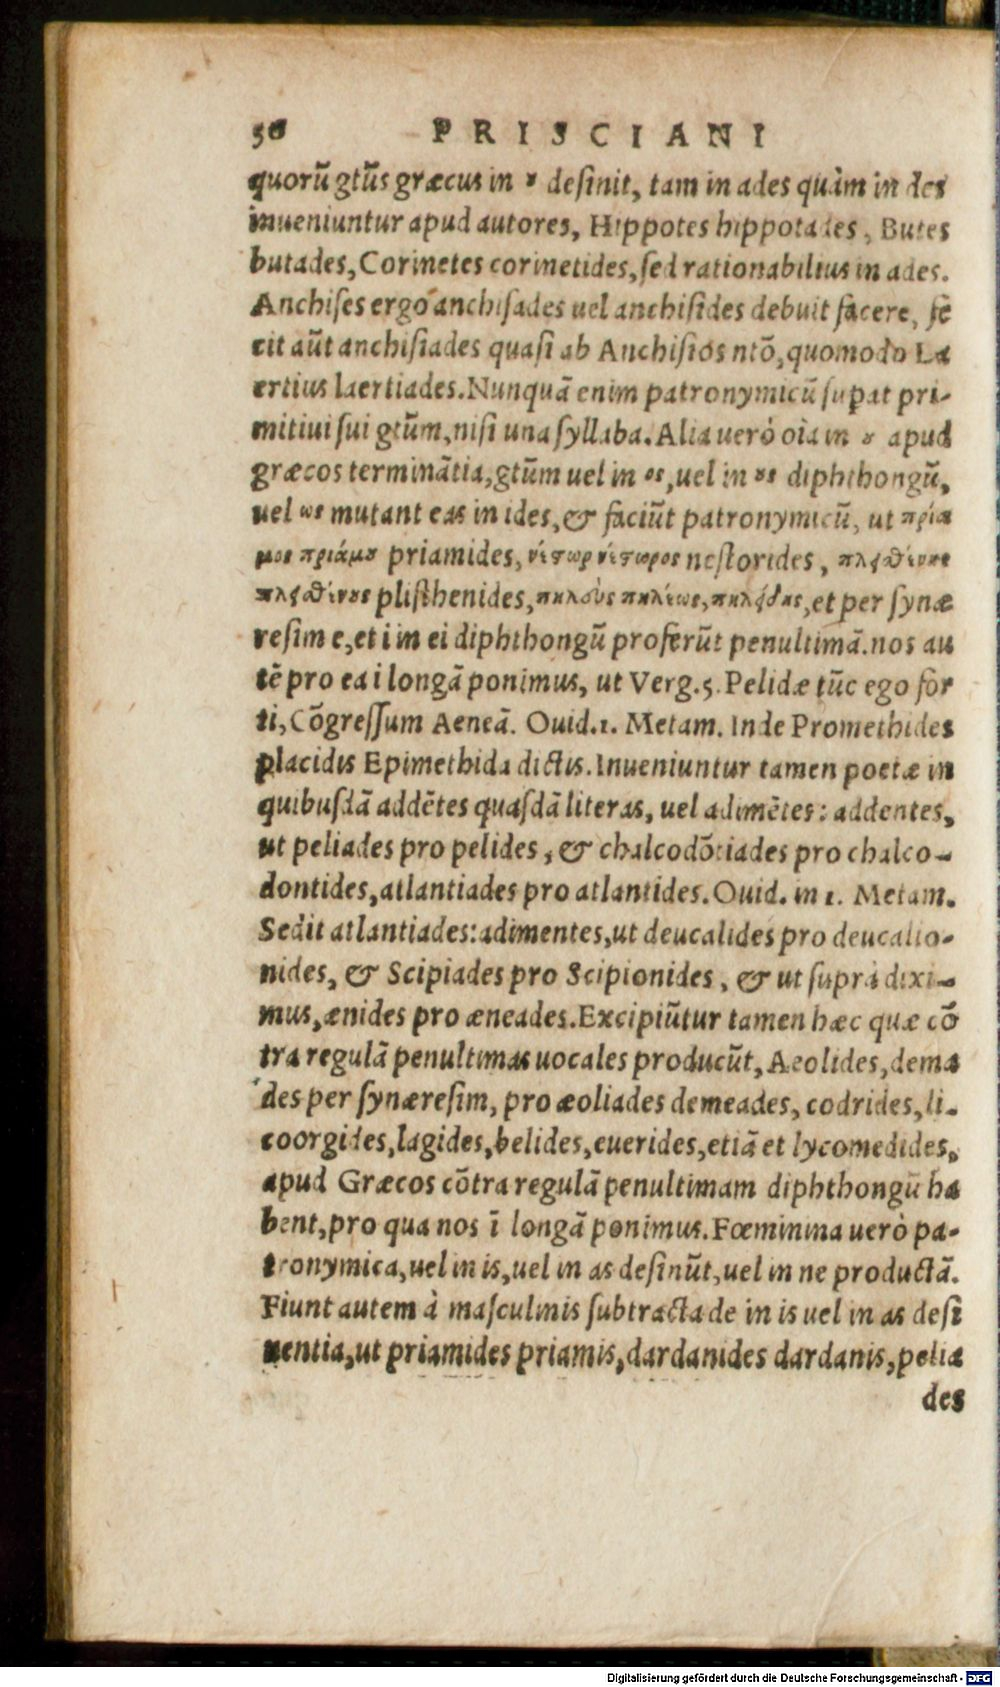 50 PRISCIANI
quorũ gtũs græcus in ȣ desinit, tam in ades quàm in des
inueniuntur apud autores, Hippotes hippotades, Butes
butades, Corinetes corinetides, sed rationabilius in ades.
Anchises ergo anchisades uel anchisides debuit facere, fe
cit aũt anchisiades quasi ab Anchisios ntõ, quomodo La
ertius laertiades. Nunquã enim patronymicũ supat pri-
mitiui sui gtũm, nisi una syllaba. Alia uerò oĩa in apud
græcos terminãtia, gtũm uel in ος, uel in ȣς diphthongũ,
uel ως mutant eas in ides, & faciũt patronymicũ, ut πρία
μος πριάμȣ priamides, νέστωρ νέστορος nestorides,
plisthenides, et per synæ
resim e, et i in ei diphthongũ proferũt penultimã. nos au
tẽ pro ea i longã ponimus, ut Verg. 5. Pelidæ tũc ego for
ti, Cõgressum Aeneã. Ouid. 1. Metam. Inde Promethides
placidis Epimethida dictis. Inueniuntur tamen poetæ in
quibusdã addẽtes quasdã literas, uel adimẽtes: addentes,
ut peliades pro pelides, & chalcodõtiades pro chalco-
dontides, atlantiades pro atlantides. Ouid. in 1. Metam.
Sedit atlantiades: adimentes, ut deucalides pro deucalio-
nides, & Scipiades pro Scipionides, & ut suprà dixi-
mus, ænides pro æneades. Excipiũtur tamen hæc quæ cõ
tra regulã penultimas uocales producũt, Aeolides, dema
des per synæresim, pro æoliades demeades, codrides, li-
coorgides, lagides, belides, euerides, etiã et lycomedides,
apud Græcos cõtra regulã penultimam diphthongũ ha
bent, pro qua nos ĩ longã ponimus. Fœminina uerò pa-
tronymica, uel in is, uel in as desinũt, uel in ne productã.
Fiunt autem à masculinis subtracta de in is uel in as desi
nentia, ut priamides priamis, dardanides dardanis, pelia
des
Digitalisierung gefördert durch die Deutsche Forschungsgemeinschaft - DFG